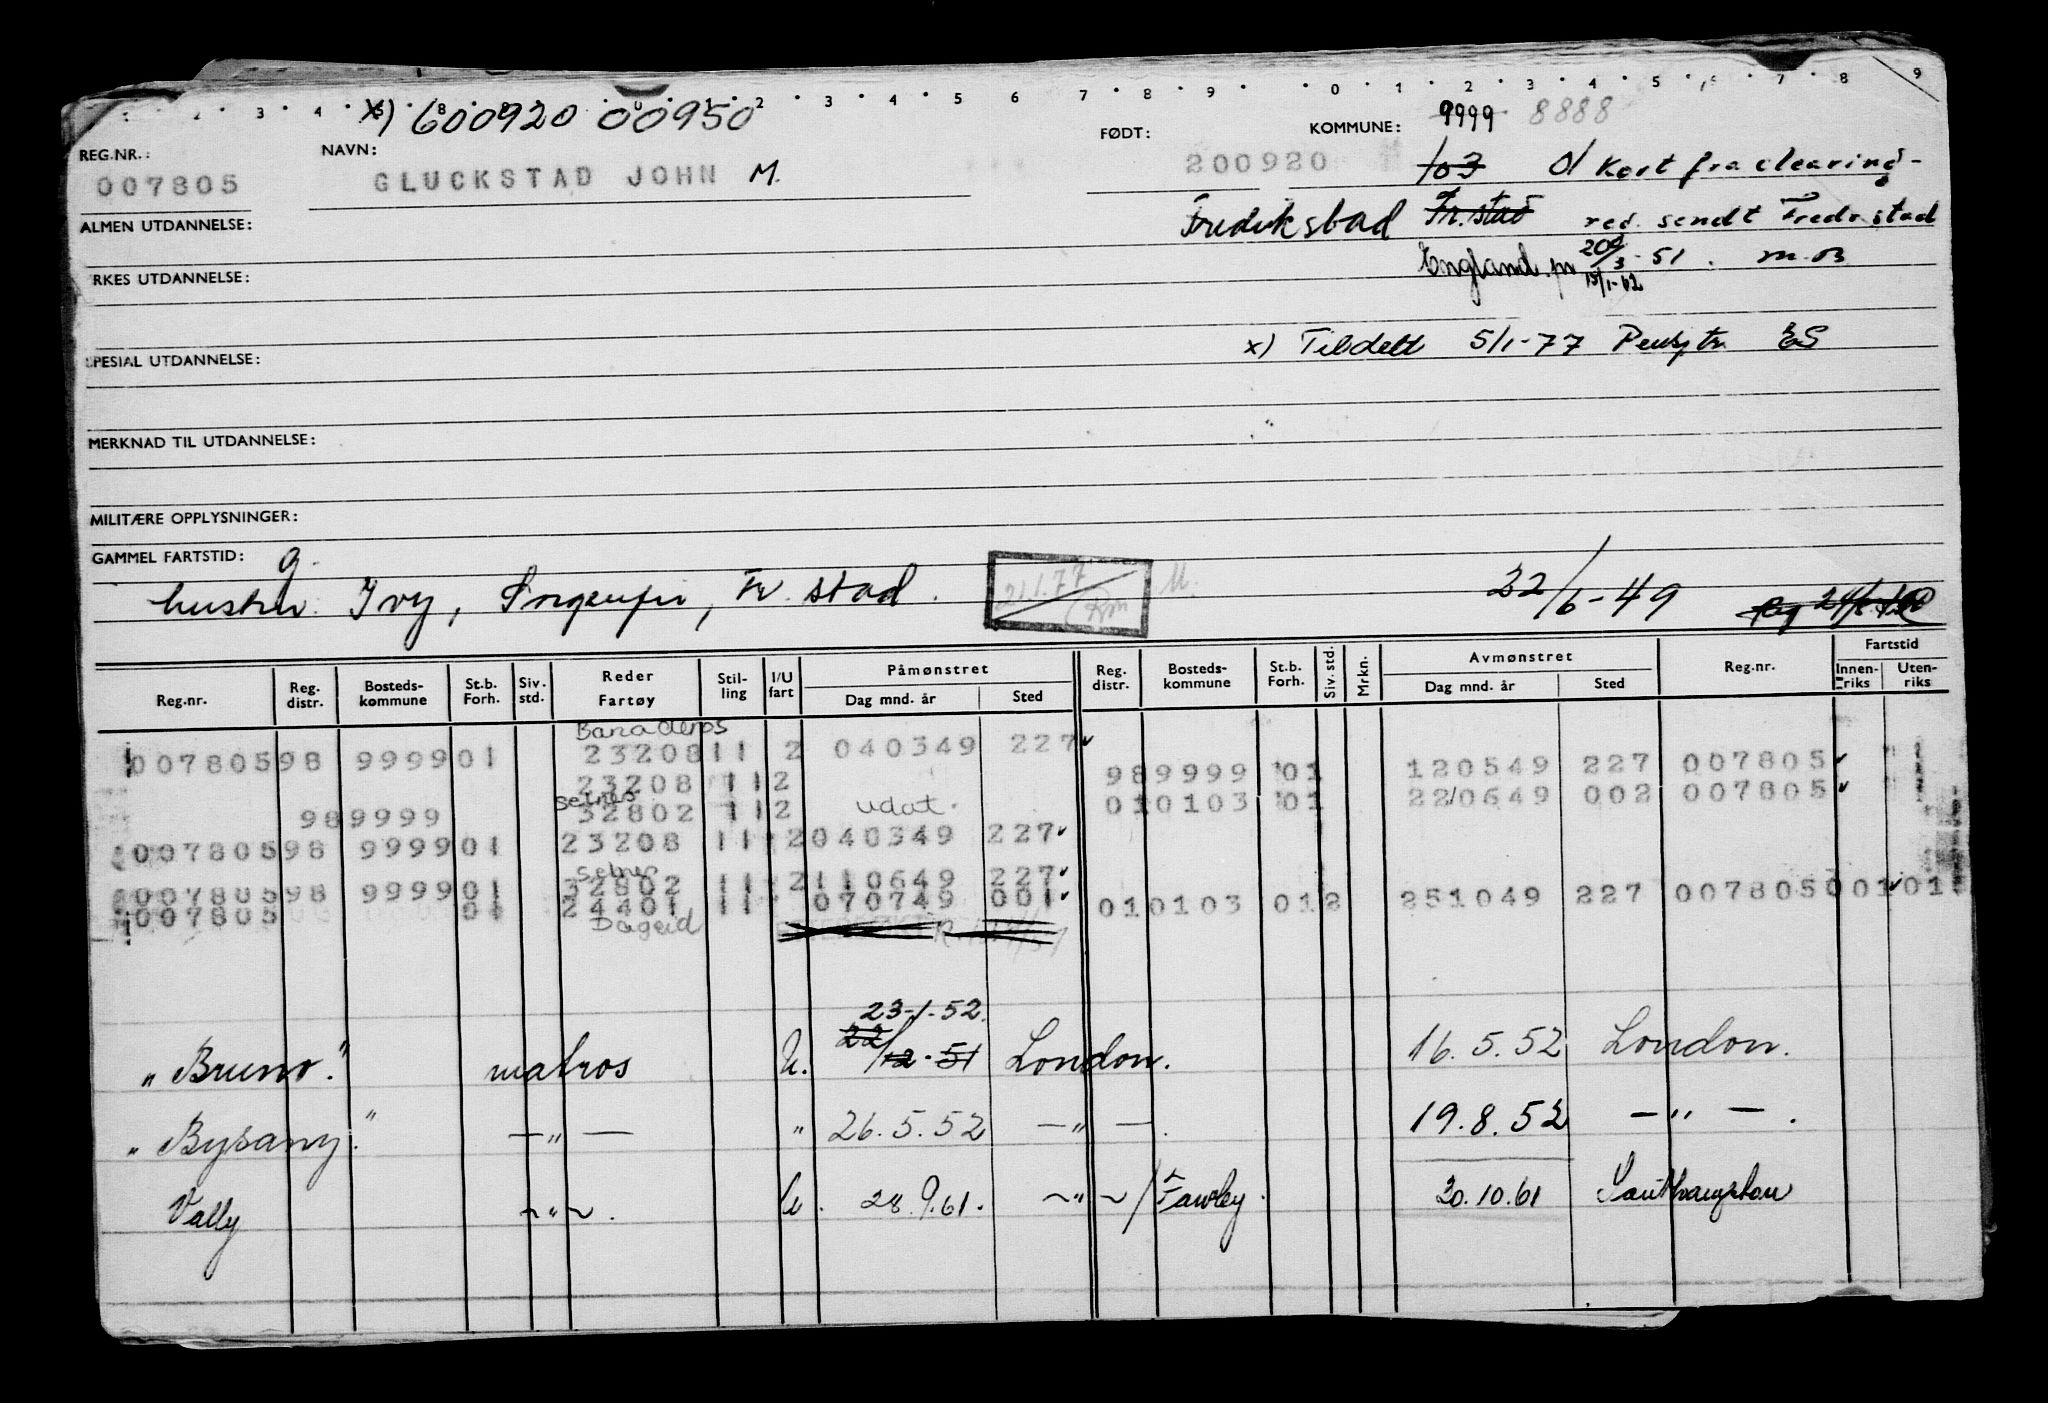 x) 600920 00950
REG.NR.: NAVN: FØDT: KOMMUNE: 9999 8888
007805 GLUCKSTAD JOHN M. 200920 103 d/ Kort fra clearing-
ALMEN UTDANNELSE: Fredrikstad Fr.stad red. sendt Fredrstad
RKES UTDANNELSE: England, pr 20/3-51. m.B
15/1-62
SPESIAL UTDANNELSE: x) Tildelt 5/1-77 Pensjtr. ES
MERKNAD TIL UTDANNELSE:
MILITÆRE OPPLYSNINGER:
GAMMEL FARTSTID: g.
hustru Ivy, Fr. stad. 21.1.77 Rm M. 22/6-49
Reg.nr. Reg. distr. Bosteds-kommune St.b. Forh. Siv. std. Reder Fartøy Stil-ling I/U fart Påmønstret Dag mnd. år Sted Reg. distr. Bosteds-kommune St.b. Forh. Siv. std. Mrkn. Avmønstret Dag mnd. år Sted Reg.nr. Fartstid Innen-riks Uten-riks
Banaderos
007805 98 9999 01 23208 11 2 040349 227
23208 11 2 98 9999 01 120549 227 007805
Selnes
98 9999 32802 11 2 udat. 01 0103 01 220649 002 007805
007805 98 9999 01 23208 11 2 040349 227
Selnes
007805 98 9999 01 32802 11 2 110649 227
007805 01 24401 11 070749 001 01 0103 012 251049 227 007805 001 01
Dageid
23-1-52.
"Bruno." matros U. 22/12-51 London. 16.5.52 London.
"Bysanz." —"— " 26.5.52 —"—. 19.8.52 —"—.
Vally ~"~. U. 28.9.61. ~"~/Fawley. 30.10.61 Southampton